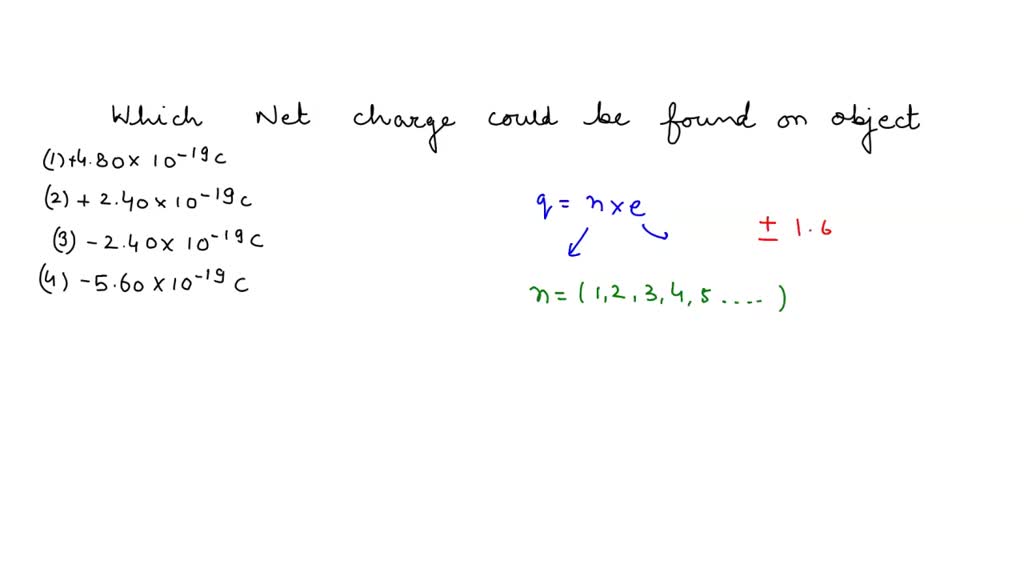 Which Net charge could be found on object
(1) +4.80 × 10⁻¹⁹ C
(2) + 2.40 × 10⁻¹⁹ C
(3) - 2.40 × 10⁻¹⁹ C
(4) - 5.60 × 10⁻¹⁹ C
q = n × e
± 1.6
n = (1, 2, 3, 4, 5 ....)